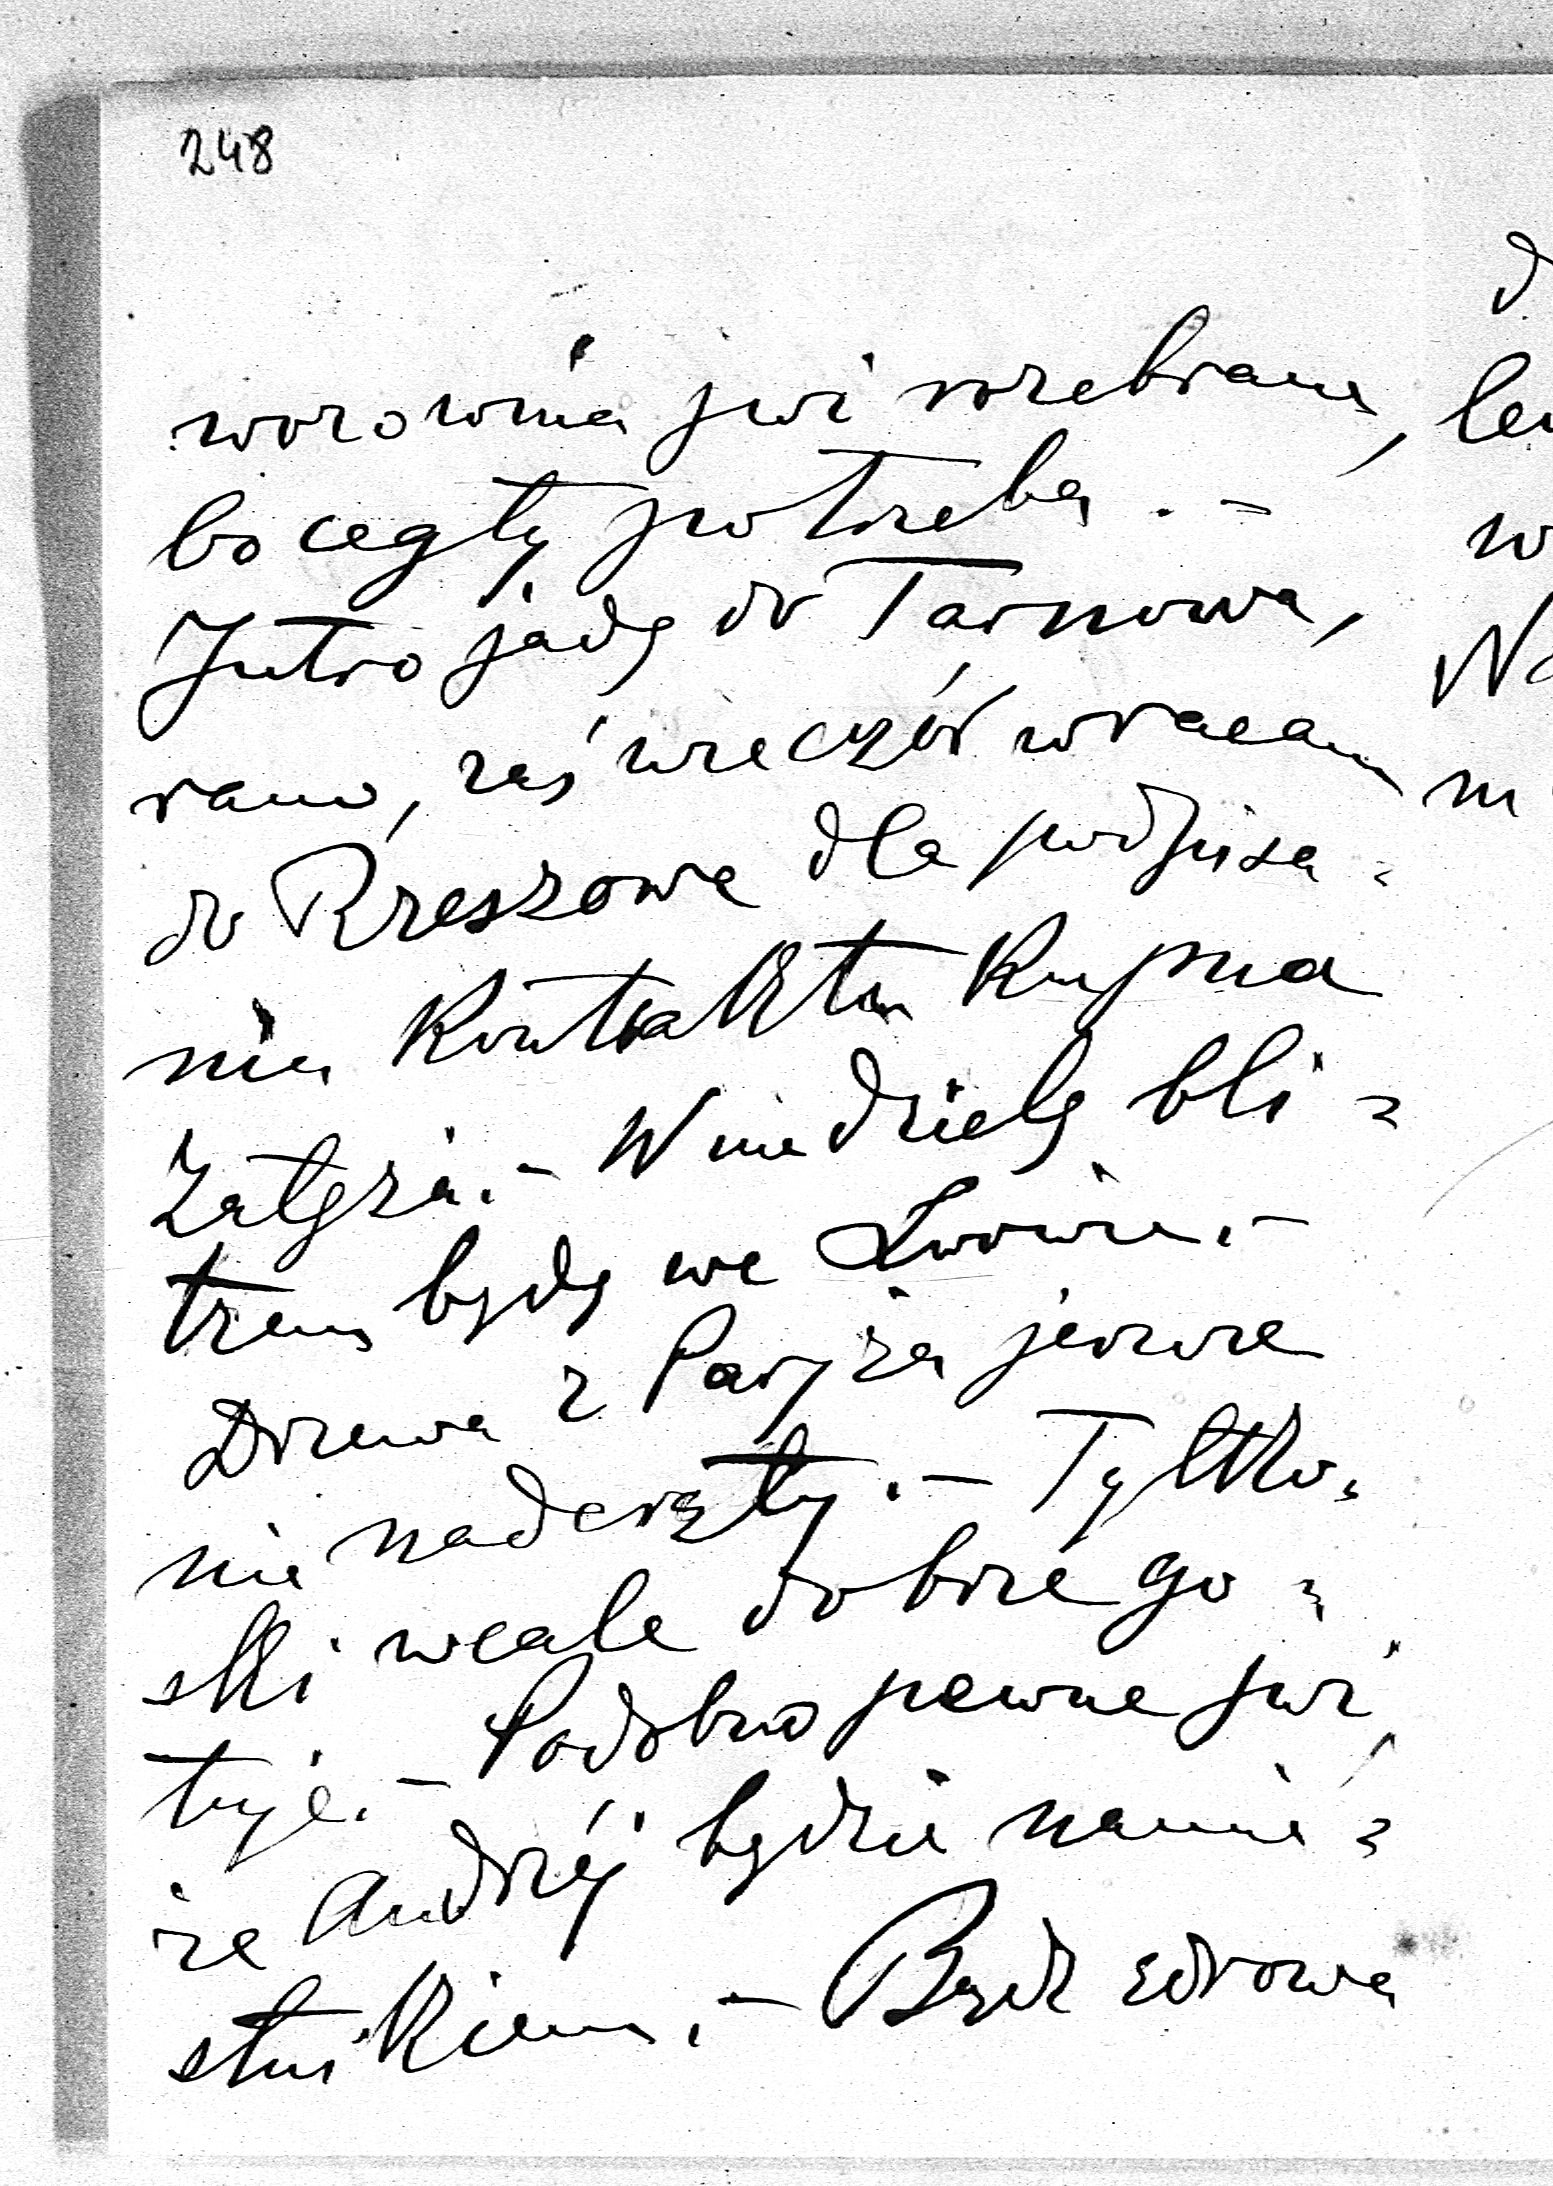 248
wozownia już rozebrana,
bo cegły potrzeba. -
Jutro jadę do Tarnowa,
rano, zaś wieczór wracam
do Rzeszowa dla podpisa=
nia Kontraktu Kupna
Załęża. - W niedzielę bli=
będę we Lwowie. -
Drzewa z Paryża jeszcze
nie nadeszły. - Tyltko=
ski wcale dobrze go=
tuje. - Podobno pewne już,
że Andrzéj będzie namie=
stnikiem. - Bądź zdrowa